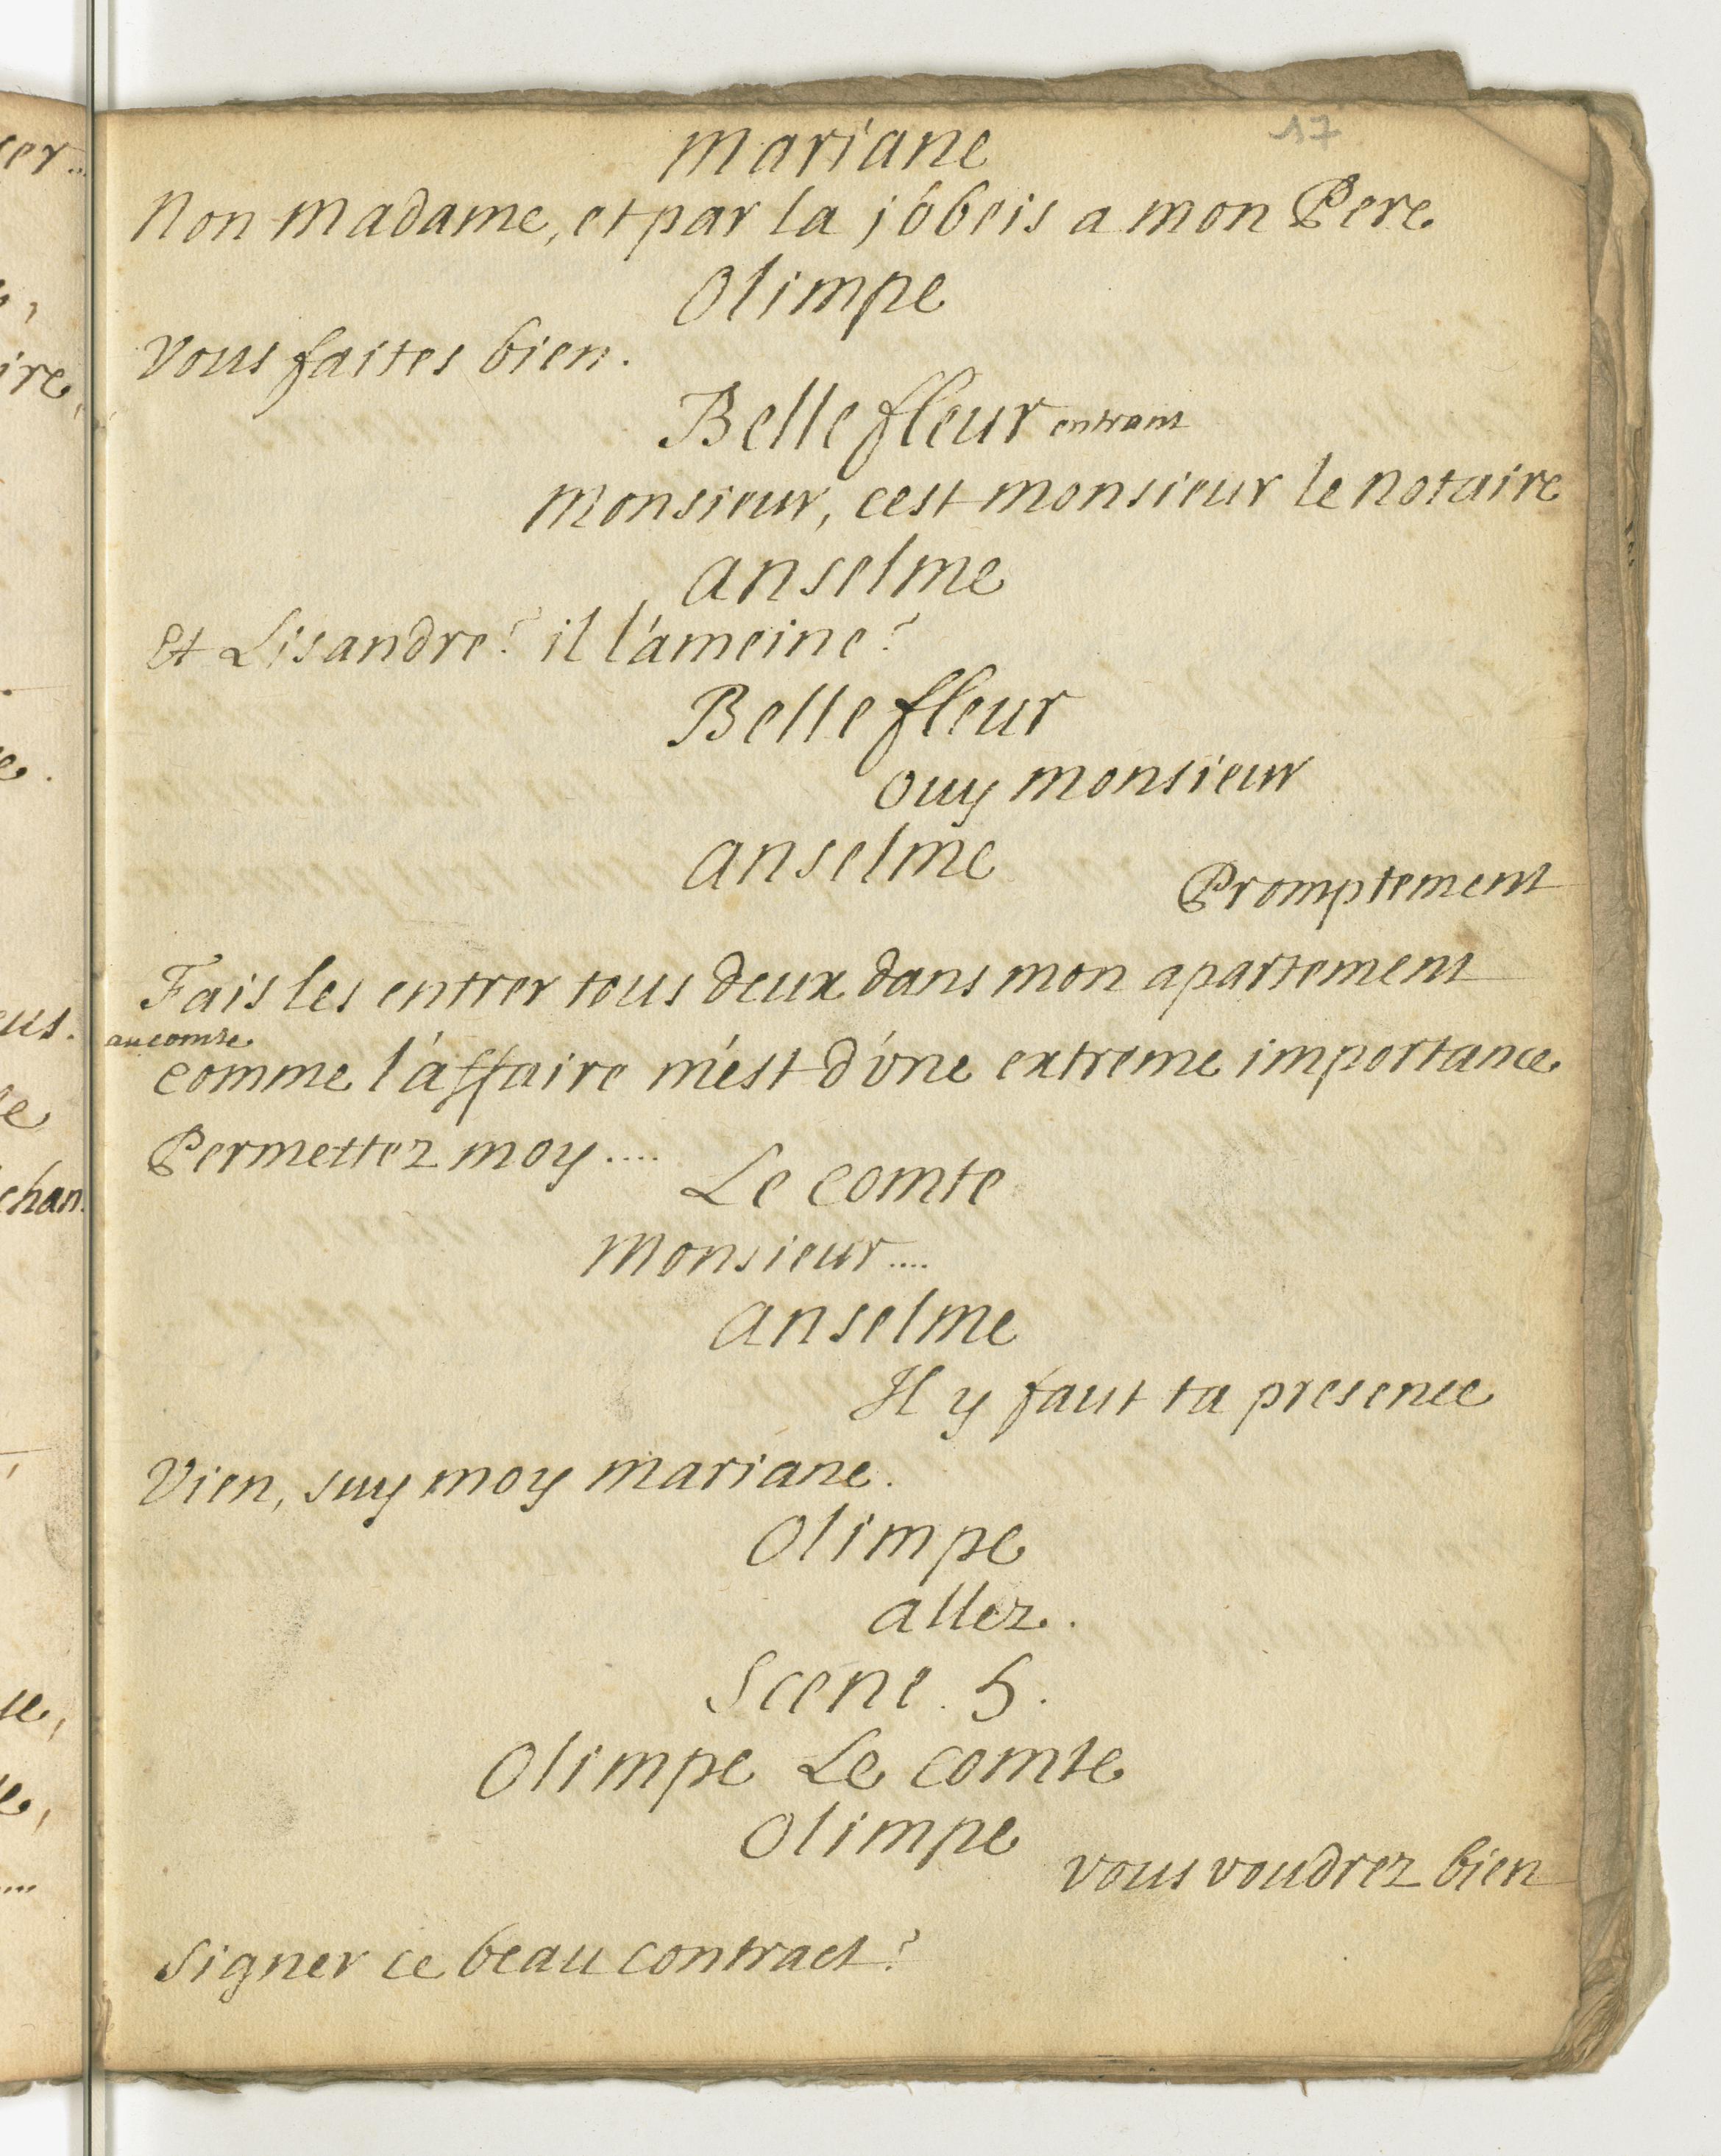 17
mariane
Non madame, et par la j'obeis a mon Pere
Olimpe
vous faites bien.
Bellefleur entrant
monsieur, cest monsieur le notaire
anselme
Et Lisandre? il l'ameine?
Bellefleur
ouy monsieur
anselme
Promptement
Fais les entrer tous deux dans mon apartement
au comte
comme l'affaire m'est d'vne extreme importance
Permettez moy....
Le comte
monsieur....
anselme
Il y faut ta presence
Vien, suy moy mariane.
Olimpe
allez.
Scene. 5.
Olimpe Le comte
Olimpe
vous voudrez bien
signer ce beau contract?